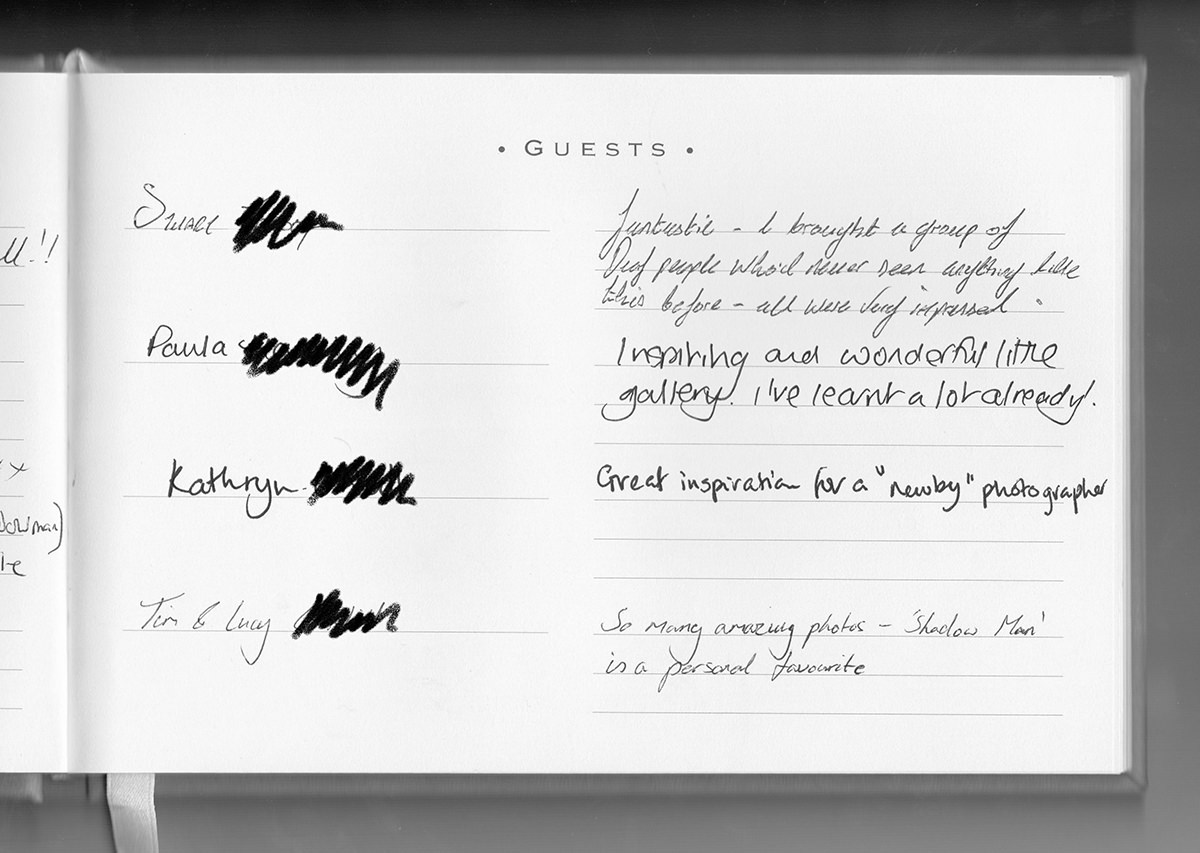 • GUESTS •
ll!!
Fantastic - I brought a group of
Deaf people who'd never seen anything like
this before - all were very impressed.
Paula
Inspiring and wonderful little
gallery. I've learnt a lot already!
Kathryn
Great inspiration for a "newby" photographer
x
Tim & Lucy
So many amazing photos - 'Shadow Man'
is a personal favourite